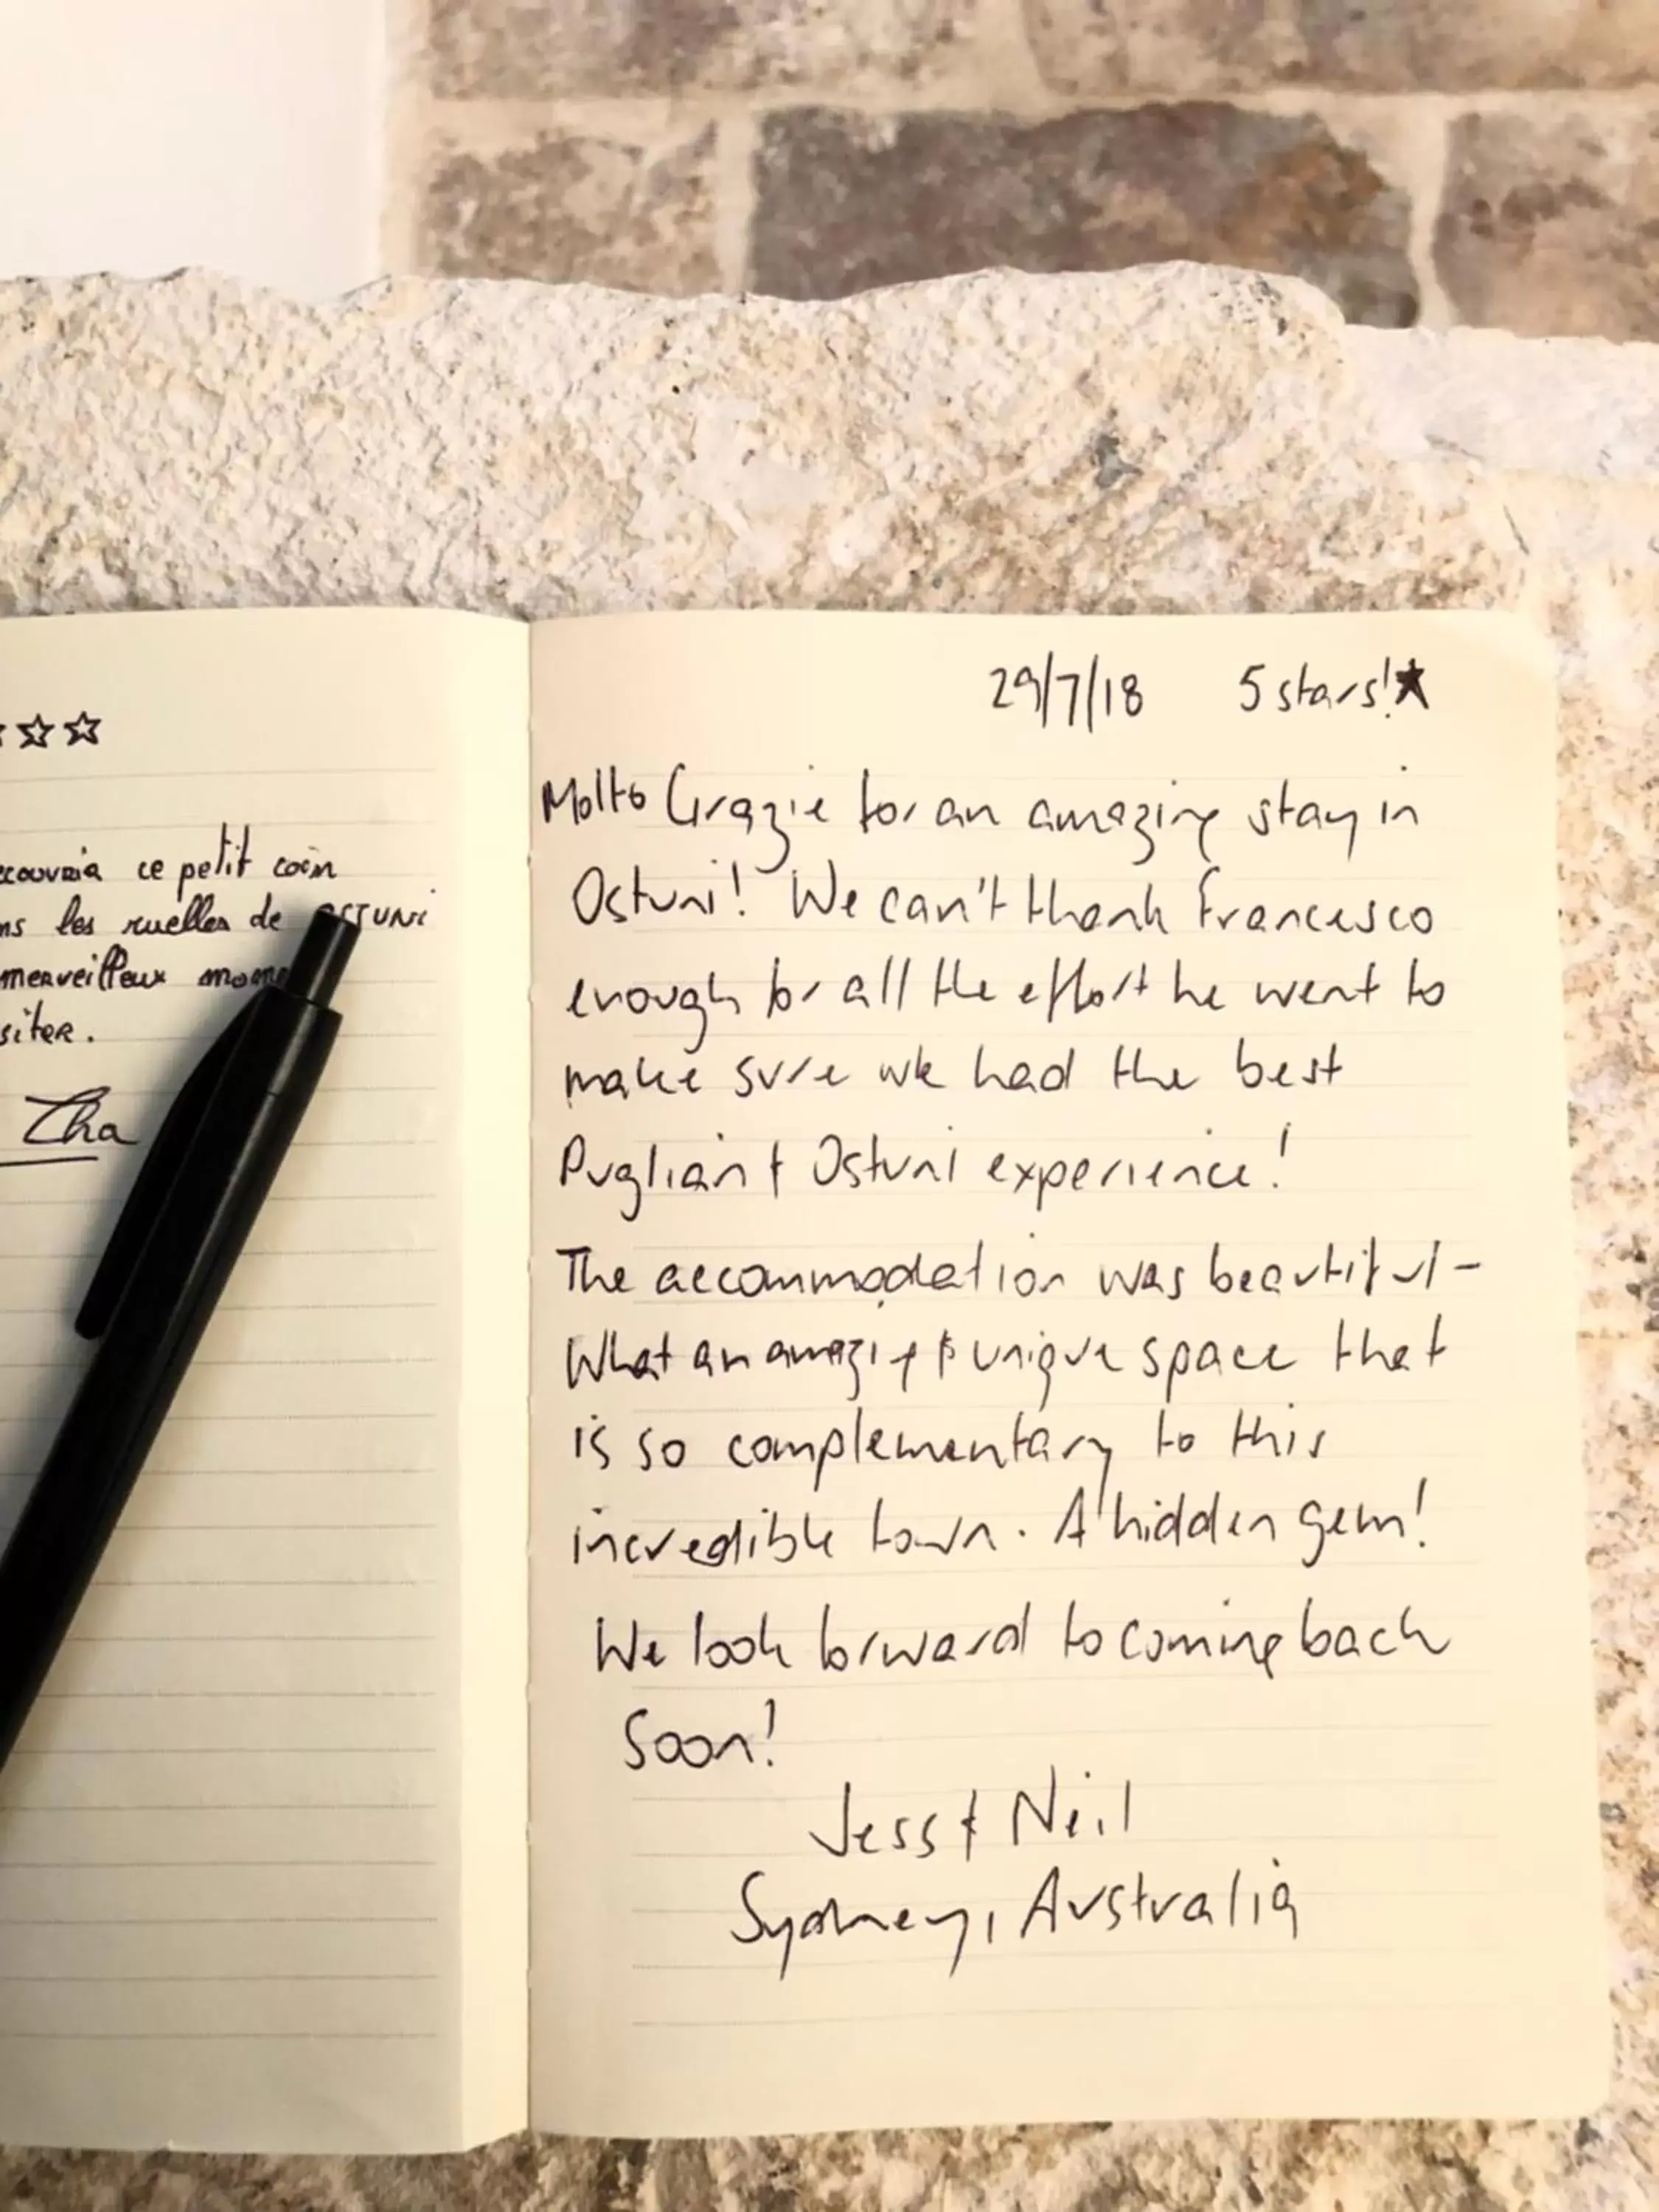 ☆☆
ce petit coin
les ruelles de OSTUNI
merveilleux
Cha
29/7/18 5 stars!★
Molto Grazie for an amazing stay in
Ostuni! We can't thank Francesco
enough for all the effort he went to
make sure we had the best
Puglian & Ostuni experience!
The accommodation was beautiful -
What an amazing & unique space that
is so complementary to this
incredible town. A hidden gem!
We look forward to coming back
Soon!
Jess & Neil
Sydney, Australia